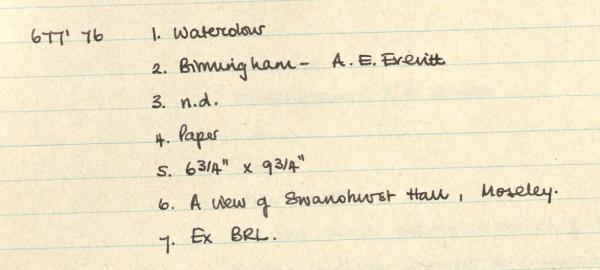 677' 76 1. Watercolour
2. Birmingham - A. E. Everitt
3. n.d.
4. Paper
5. 6 3/4" x 9 3/4"
6. A view of Swanshurst Hall, Moseley.
7. Ex BRL.